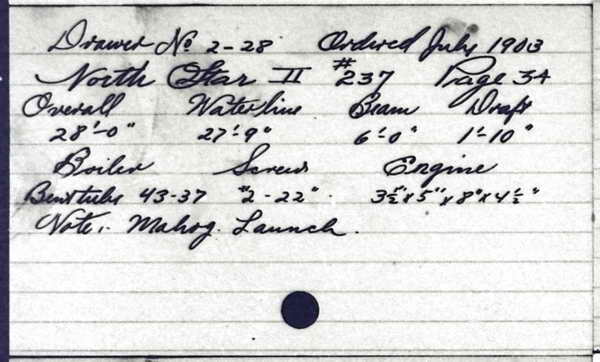 Drawer No 2-28 Ordered July 1903
North Star II #237 Page 34
Overall Waterline Beam Draft
28'-0" 27'-9" 6'-0" 1'-10"
Boiler Screw Engine
Bent tube 43-37 #2-22" 3½"x5"x8"x4½"
Note:- Mahog. Launch.